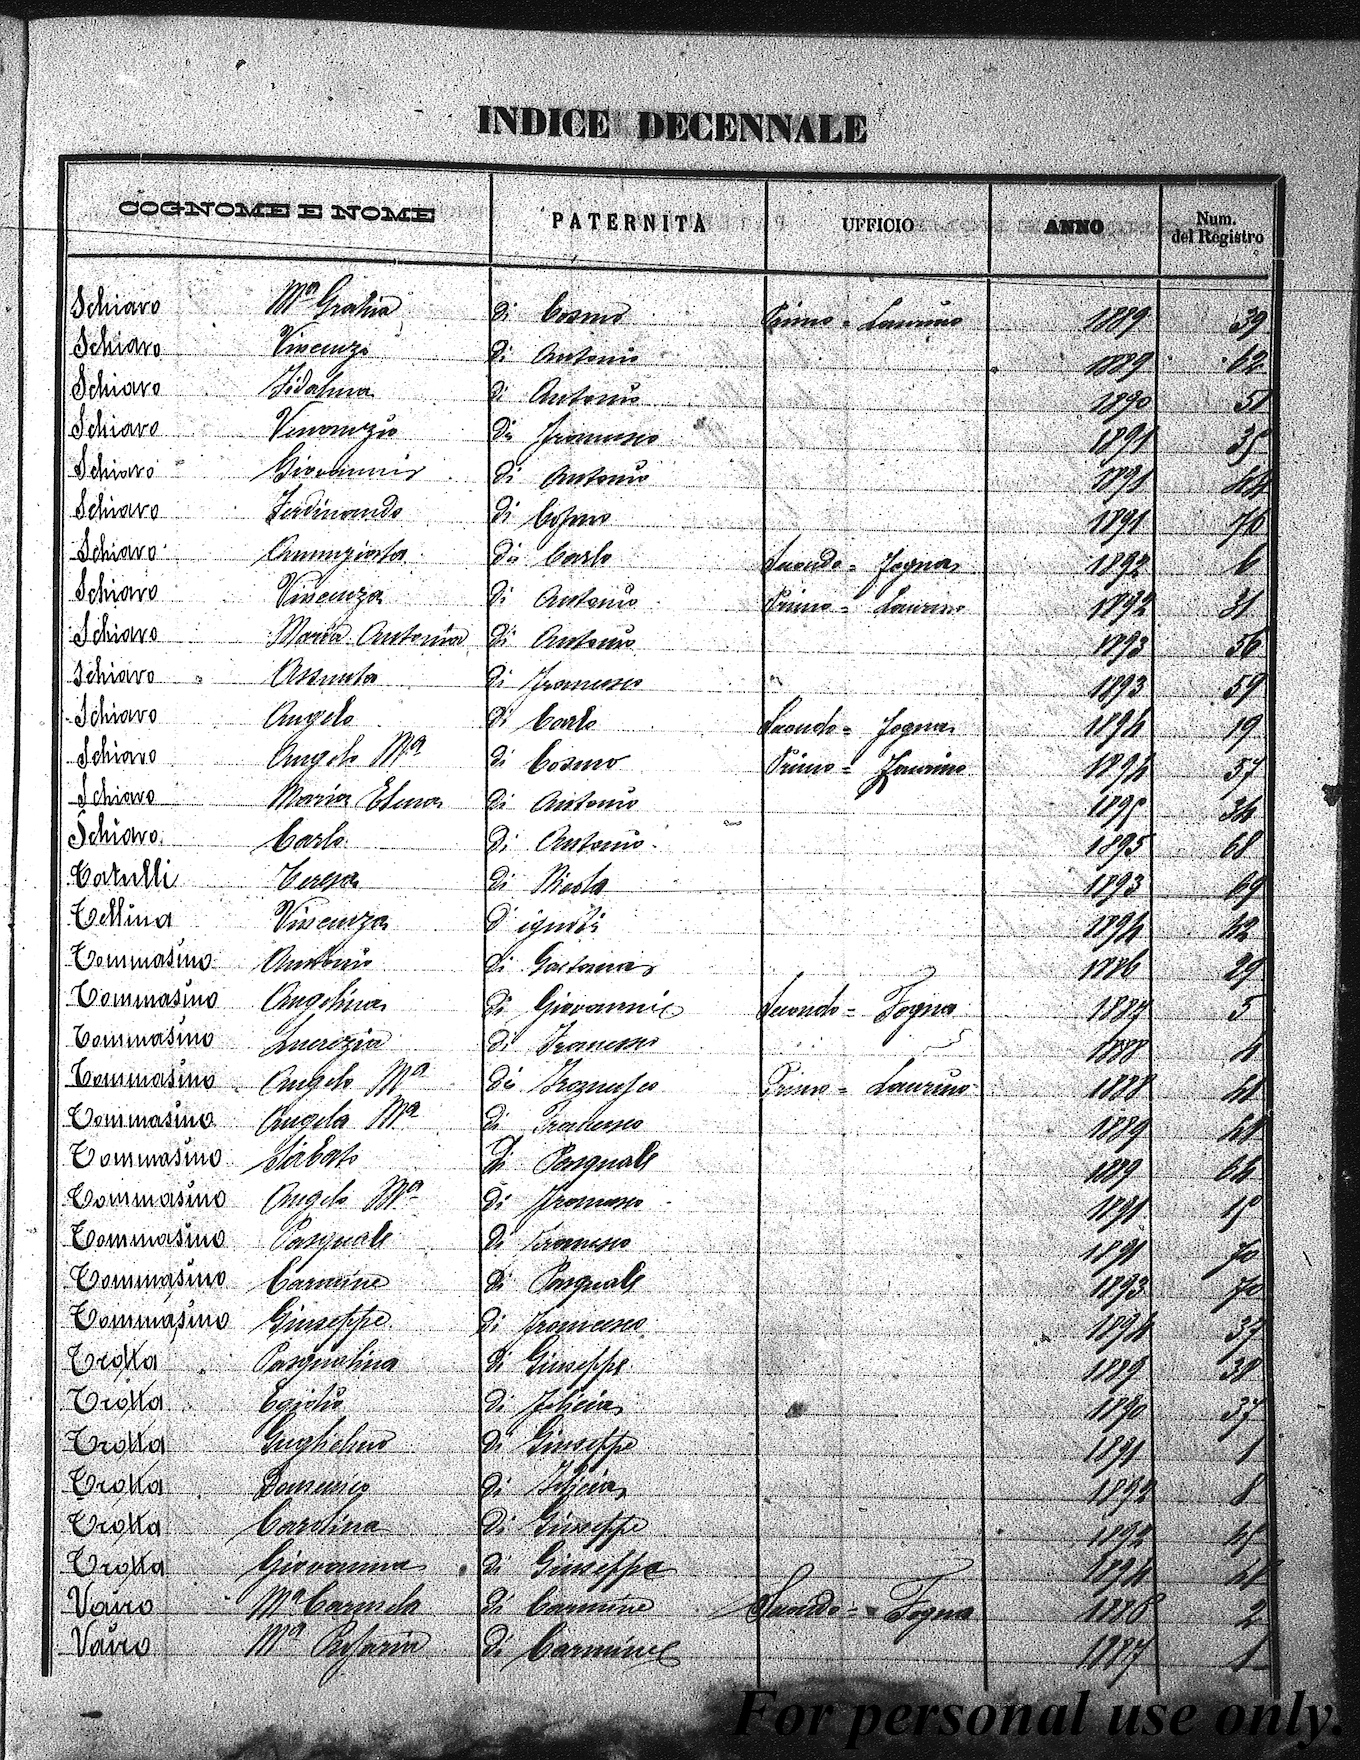 INDICE DECENNALE
COGNOME E NOME PATERNITA UFFICIO ANNO Num. del Registro
Schiavo Mª Grazia di Cosmo Primo = Laurino 1889 39
Schiavo Vincenzo di Antonio 1889 62
Schiavo Fidalma di Antonio 1890 51
Schiavo Venanzio di Francesco 1891 35
Schiavo Giovanni di Antonio 1891 44
Schiavo Ferdinando di Cosmo 1891 76
Schiavo Annunziata di Carlo Secondo = Fogna 1892 6
Schiavo Vincenza di Antonio Primo = Laurino 1892 31
Schiavo Maria Antonia di Antonio 1893 56
Schiavo Assunta di Francesco 1893 59
Schiavo Angelo di Carlo Secondo = Fogna 1894 19
Schiavo Angelo Mª di Cosmo Primo = Laurino 1894 57
Schiavo Maria Elena di Antonio 1895 34
Schiavo Carlo di Antonio 1895 68
Tatulli Teresa di Nicola 1893 69
Tellina Vincenza d'ignoti 1894 42
Tommasino Antonio di Gaetana 1886 29
Tommasino Angelina di Giovanni Secondo = Fogna 1887 5
Tommasino Lucrezia di Francesco 1888
Tommasino Angelo Mª di Francesco Primo = Laurino 1888
Tommasino Angela Mª di Francesco 1889
Tommasino Sabato di Pasquale 1889 64
Tommasino Angelo Mª di Francesco 1891 15
Tommasino Pasquale di Francesco 1891 70
Tommasino Carmine di Pasquale 1893 70
Tommasino Giuseppe di Francesco 1894 37
Trotta Pasqualina di Giuseppe 1889 38
Trotta Egidio di Felicia 1890 37
Trotta Guglielmo di Giuseppe 1891 1
Trotta Domenico di Felicia 1892 8
Trotta Carolina di Giuseppe 1892 45
Trotta Giovanna di Giuseppe 1894
Vairo Mª Carmela di Carmine Secondo = Fogna 1886 2
Vairo Mª Rosaria di Carmine 1887 1
For personal use only.